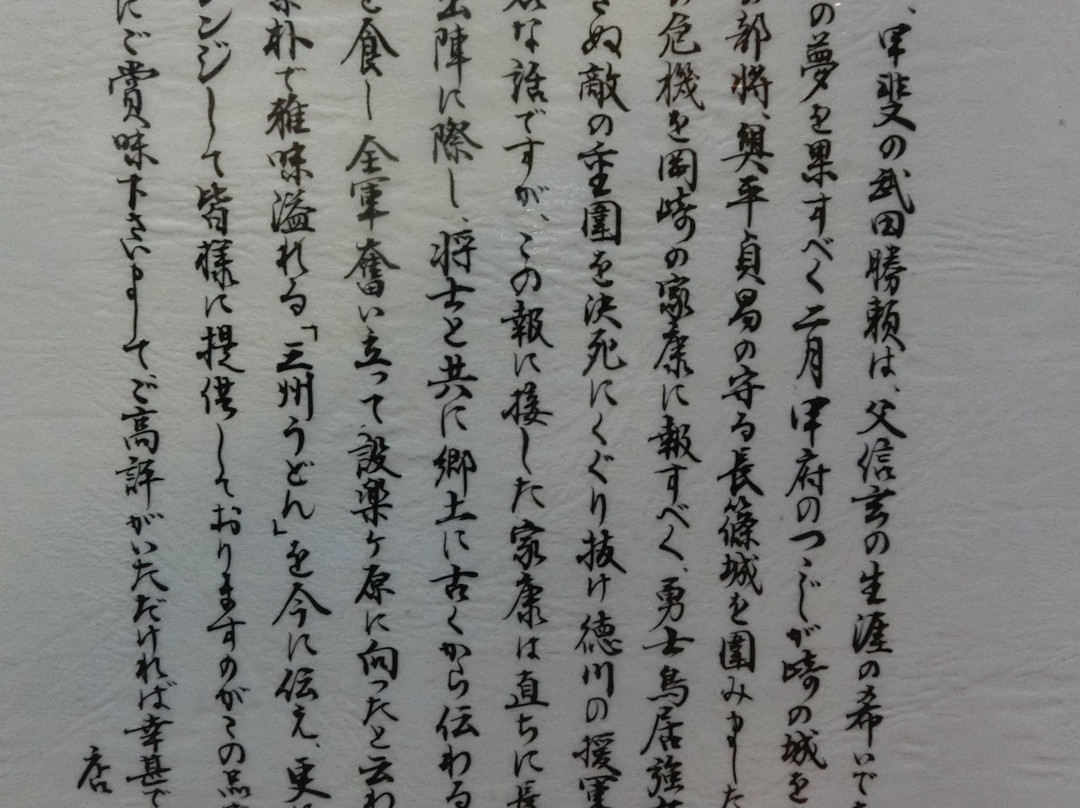 、甲斐の武田勝頼は、父信玄の生涯の希いで
の夢を果すべく二月甲府のつゝじが崎の城を
部将、奥平貞昌の守る長篠城を囲みました
危機を岡崎の家康に報すべく、勇士鳥居強
ぬ敵の重圍を決死にくぐり抜け徳川の援軍
な話ですが、この報に接した家康は直ちに長
出陣に際し、将士と共に郷土に古くから伝わる
を食し全軍奮い立って設楽ヶ原に向ったと云わ
朴で雅味溢れる「三州うどん」を今に伝え、更
ンジして皆様に提供しておりますのがこの品
にご賞味下さいましてご高評がいただければ幸甚で
店